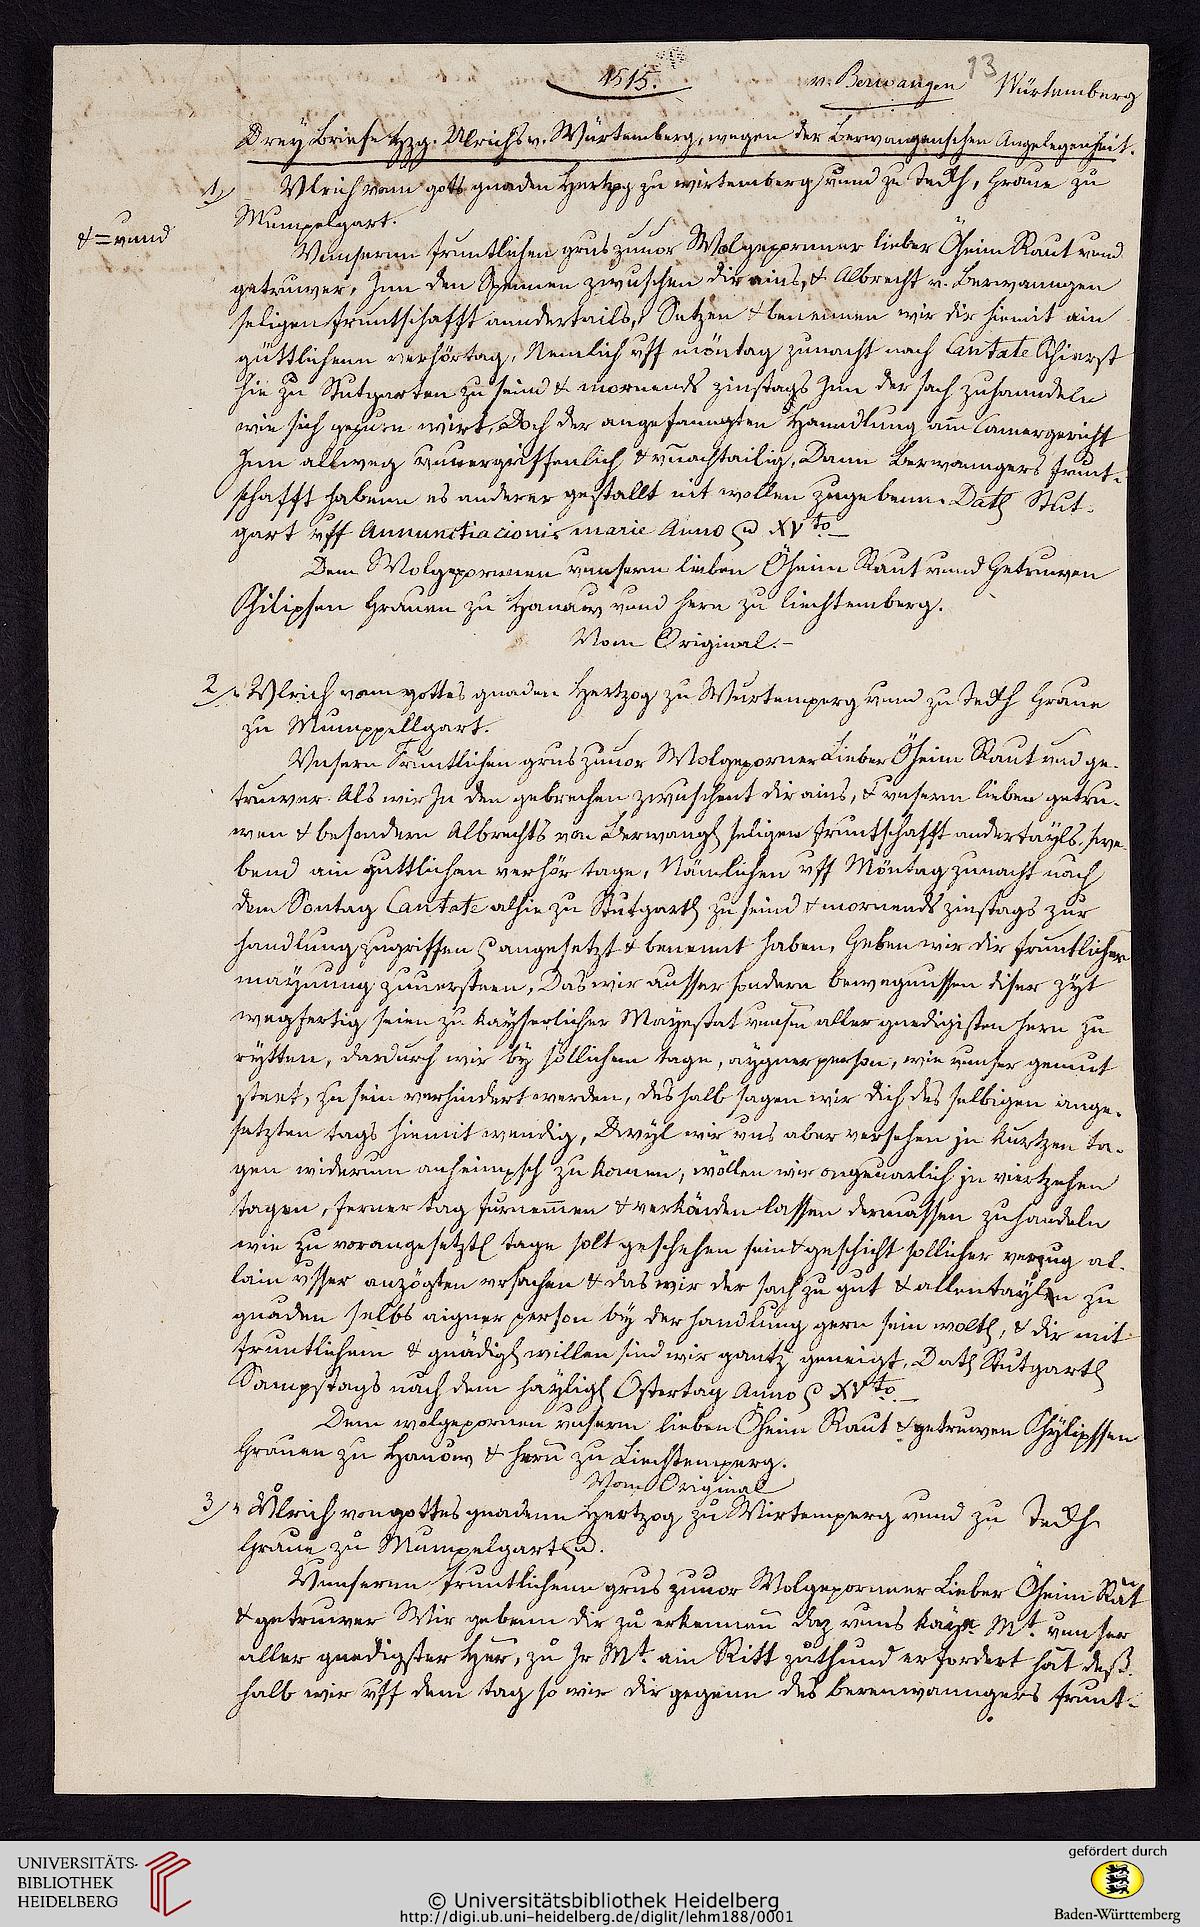 13
1515.
v. Berwangen Würtemberg
Drey Briefe Hzg. Ulrichs v. Würtemberg, wegen der Berwangenschen Angelegenheit.
1) Vlrich vonn gots gnaden Hertzog zu wirtemberg vnnd zu Teckh, Graue zu
Mumpelgart.
& = vnnd
Vnnsernn fruntlichen grus zuuor Wolgepornner lieber Öheim Raut vnnd
getruwer, Inn den Spennen zwuschen dir ains, & Albrecht v. Berwanngen
seligen fruntschafft anndertails, Setzen & benennen wir dir hiemit ain
güttlichenn verhörtag, Nemlich vff möntag zunacht nach Cantate schierst
hie zu Stutgarten zu seind & mornends zinstags Inn der sach zuhanndeln
wie sich gepurn wirt, Doch der angefanngten Hanndlung am Camergericht
Inn allweg vnuergriffenlich & vnachtailig, Dann Berwanngers frunt-
schafft habenn es anderer gestallt nit wollen zugebenn. Dat Stut-
gart vff Annunctiacionis marie Anno XVto
Dem Wolgepornnen vnnsern lieben Öheim Raut vnnd Getruwen
Philipsen Grauen zu Hanaw vnnd hern zu Liechtemberg.
Vom Original.-
2) Vlrich von gottes gnaden Hertzog zu Wurtemperg vnnd zu Teckh Graue
zu Mumppellgart.
Vnsern Fruntlichen grus zuuor Wolgeporner Lieber Öheim Raut vnd ge-
truwer. Als wir In den gebrechen zwuschent dir ains, & vnserm lieben getru-
wen & besondern Albrechts von Berwang seligen fruntschafft andertayls, swe-
bend ain guttlichen verhör tage, Nämlichen vff Möntag zunacht nach
dem Sontag Cantate alhie zu Stutgart zu seind & mornends zinstags zur
handlung zugriffen angesetzt & benennt haben, Geben wir dir fruntlicher
maynung zuuersteen, Das wir ausser sondern bewegnussen diser zyt
wegfertig seien zu kayserlicher Mayestat vnserm aller gnedigisten hern zu
rytten, dardurch wir by sollichem tage, aygner person, wie vnnser gemut
steet, zu sein verhindert werden, deshalb sagen wir dich des selbigen ange-
setzten tags hiemit wendig, Dwyl wir vns aber versehen in kurtzen ta-
gen widerum anheimpsch zu komen, wöllen wir ongeuarlich in viertzehen
tagen, ferner tag furnemen & verkünden lassen dermassen zuhandeln
wie zu vorangesetzt tage solt geschehen sein & geschicht sollicher verzug al-
lain vsser anzögten vrsachen & das wir der sach zu gut & allentaylen zu
gnaden selbs aigner person by der handlung gern sein wolt, & dir mit
fruntlichem & gnädig willen sind wir gantz geneigt. Dat Stutgart
Sampstags nach dem hayligen Ostertag Anno XVto
Dem wolgepornen vnserm lieben Öheim Raut & getruwen Phylipssen
Grauen zu Hanow & hern zu Liechtemperg.
Vom Original
3) Vlrich von gottes gnadenn Hertzog zu Wirtemperg vnnd zu Teckh
Graue zu Mumpelgart.
Vnnsernn fruntlichenn grus zuuor Wolgepornner Lieber Öheim Rat
& getruwer Wir gebenn dir zu erkennen daz vnns kay. Mt. vnnser
aller gnedigster Her, zu Ir Mt. ain Ritt zuthund erfordert hat deß-
halb wir vff dem tag so wir dir gegenn des berenwanngers frunt-
UNIVERSITÄTS-
BIBLIOTHEK
HEIDELBERG
© Universitätsbibliothek Heidelberg
http://digi.ub.uni-heidelberg.de/diglit/lehm188/0001
gefördert durch
Baden-Württemberg